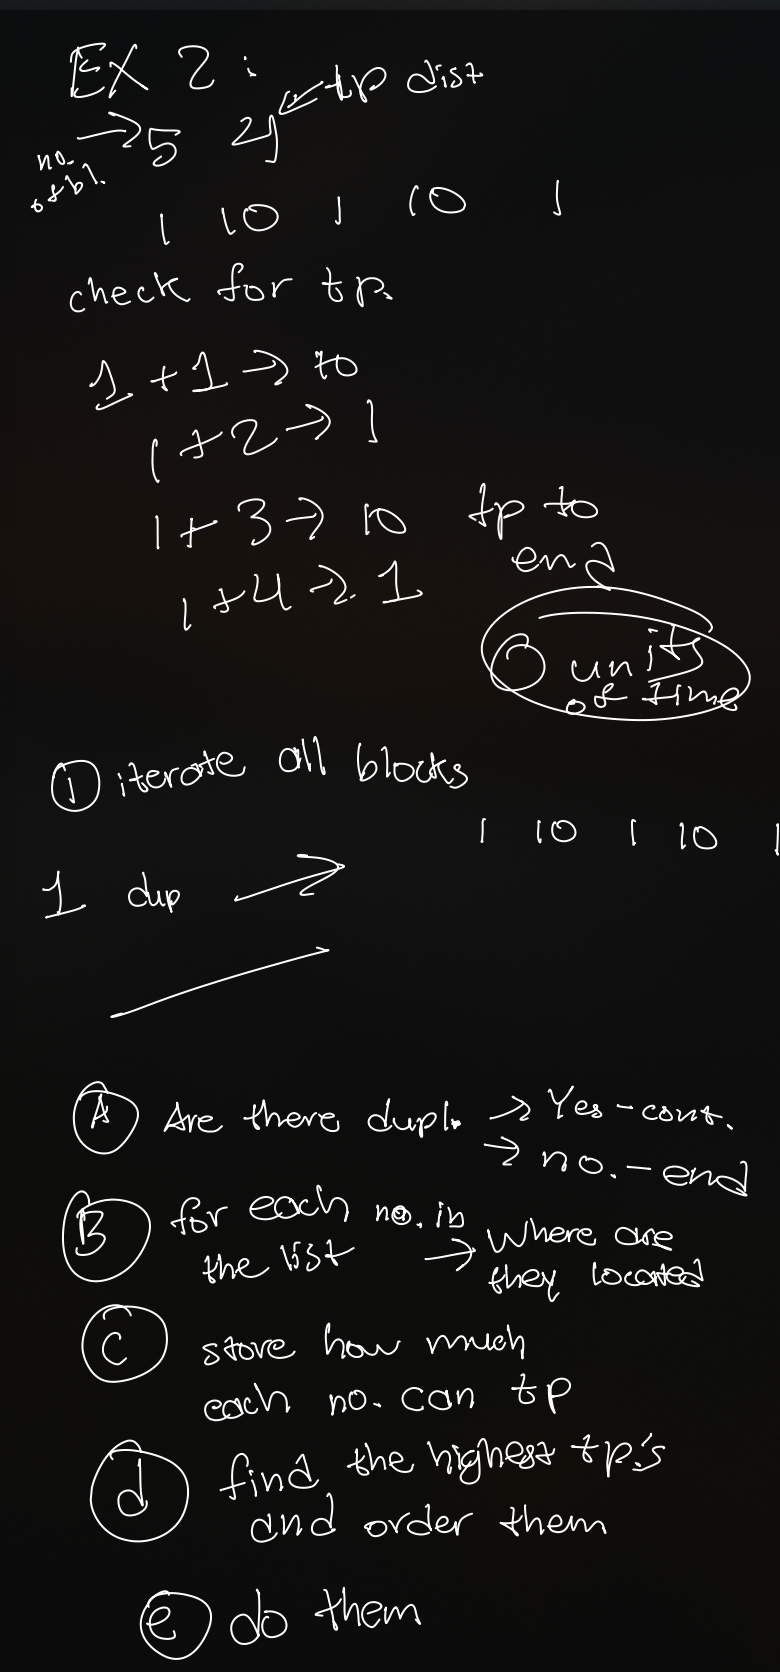 EX 2:
← tp dist
no. of bl. → 5 4
1 10 1 10 1
check for tp.
1 + 1 → 10
1 + 2 → 1
1 + 3 → 10
1 + 4 → 1
tp to
end
0 units
of time
① iterate all blocks
1 10 1 10 1
1 dup →
A Are there dupl. → Yes - cont.
→ no. - end
B for each no. in
the list → Where are
they located
C store how much
each no. can tp
d find the highest tp's
and order them
e do them